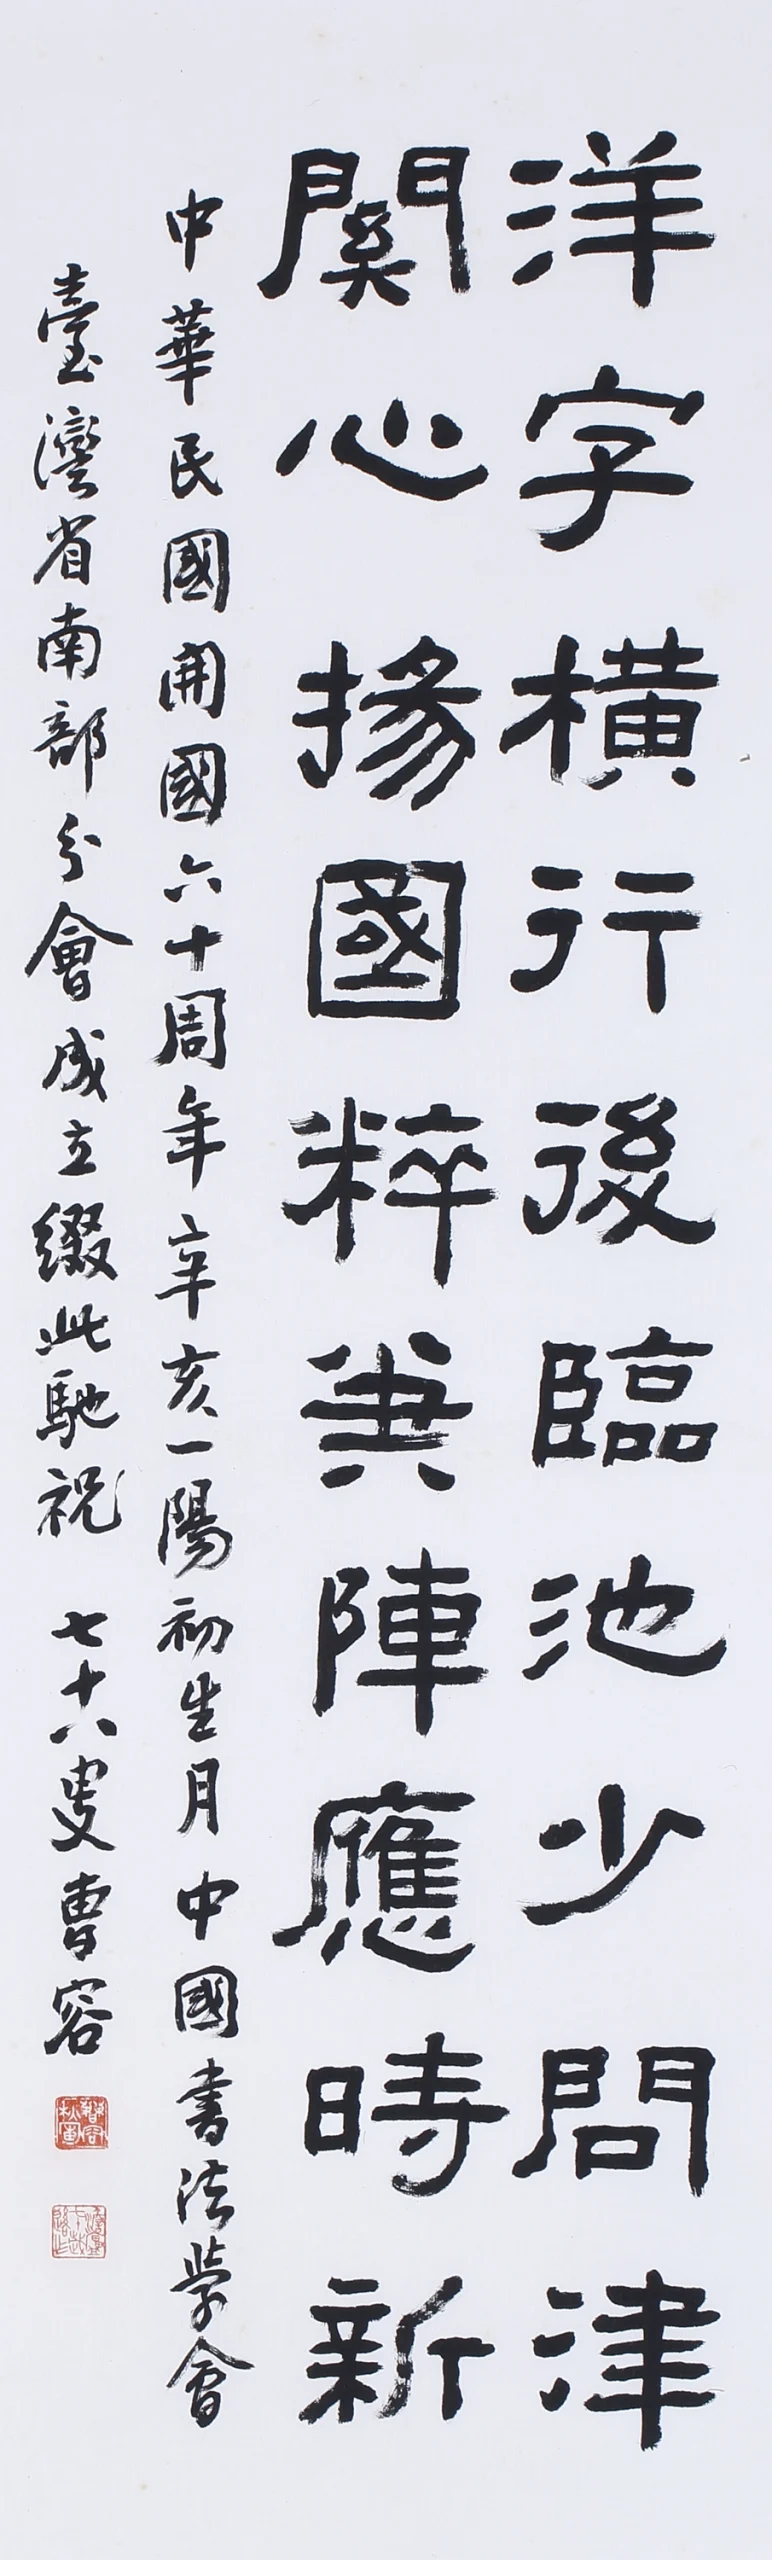 洋字橫行後臨池少問津
關心揚國粹陣應時新
中華民國開國六十周年辛亥一陽初生月中國書法學會
臺灣省南部分會成立綴此馳祝 七十八叟曹容
曹容秋圃